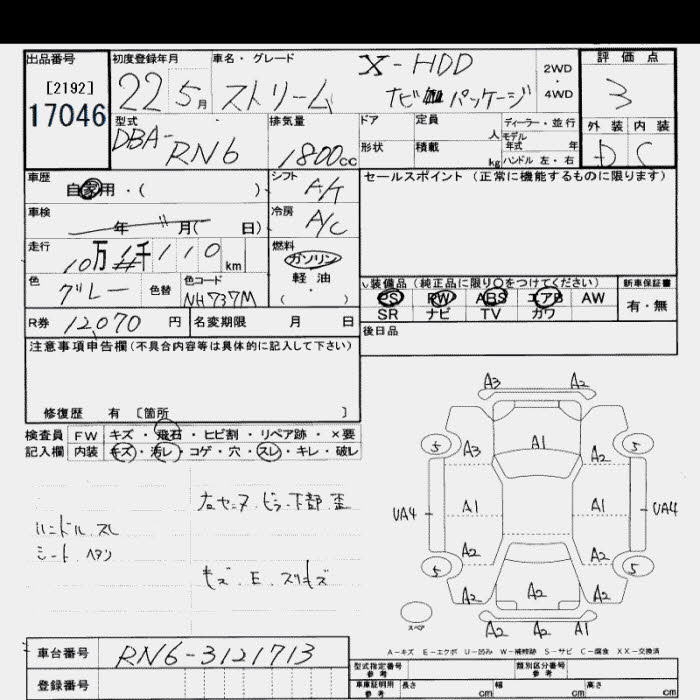 出品番号 初度登録年月 車名・グレード X-HDD 2WD 評価点
[2192] 22 5月 ストリーム ナビ パッケージ ・ 3
17046 4WD
型式 排気量 ドア 定員 ディーラー・並行 外装 内装
DBA- 人 モデル年式 年 D C
RN6 1800cc 形状 積載 kg ハンドル 左・右
車歴 自家用・( ) シフト A/T セールスポイント(正常に機能するものに限ります)
車検 年 11月( 日) 冷房 A/C
走行 10万 千110km 燃料 ガソリン
軽油
・( )
色 グレー 色替 色コード NH737M
装備品(純正品に限り○をつけてください) 新車保証書
PS PW ABS エアB AW 有・無
SR ナビ TV カワ
R券 12,070 円 名変期限 月 日 後日品
注意事項申告欄(不具合内容等は具体的に記入して下さい)
修復歴 有 〔箇所 〕
検査員 FW キズ・飛石・ヒビ割・リペア跡・×要
記入欄 内装 キズ・汚レ・コゲ・穴・スレ・キレ・破レ
ハンドル、スレ
シート、ヘタリ
下部 歪
キズ、E、スリキズ
A3 A2
5 A3 A1 A2 5
UA4 A1 A1 UA4
A2 A2
5 A2 A2 A2 5
スペア A2 A2 A2
A-キズ E-エクボ U-凹み W-補修跡 S-サビ C-腐食 XX-交換済
車台番号 RN6-3121713
登録番号
型式指定番号 参考 類別区分番号 参考
車庫証明用 参考 長さ cm 幅 cm 高さ cm